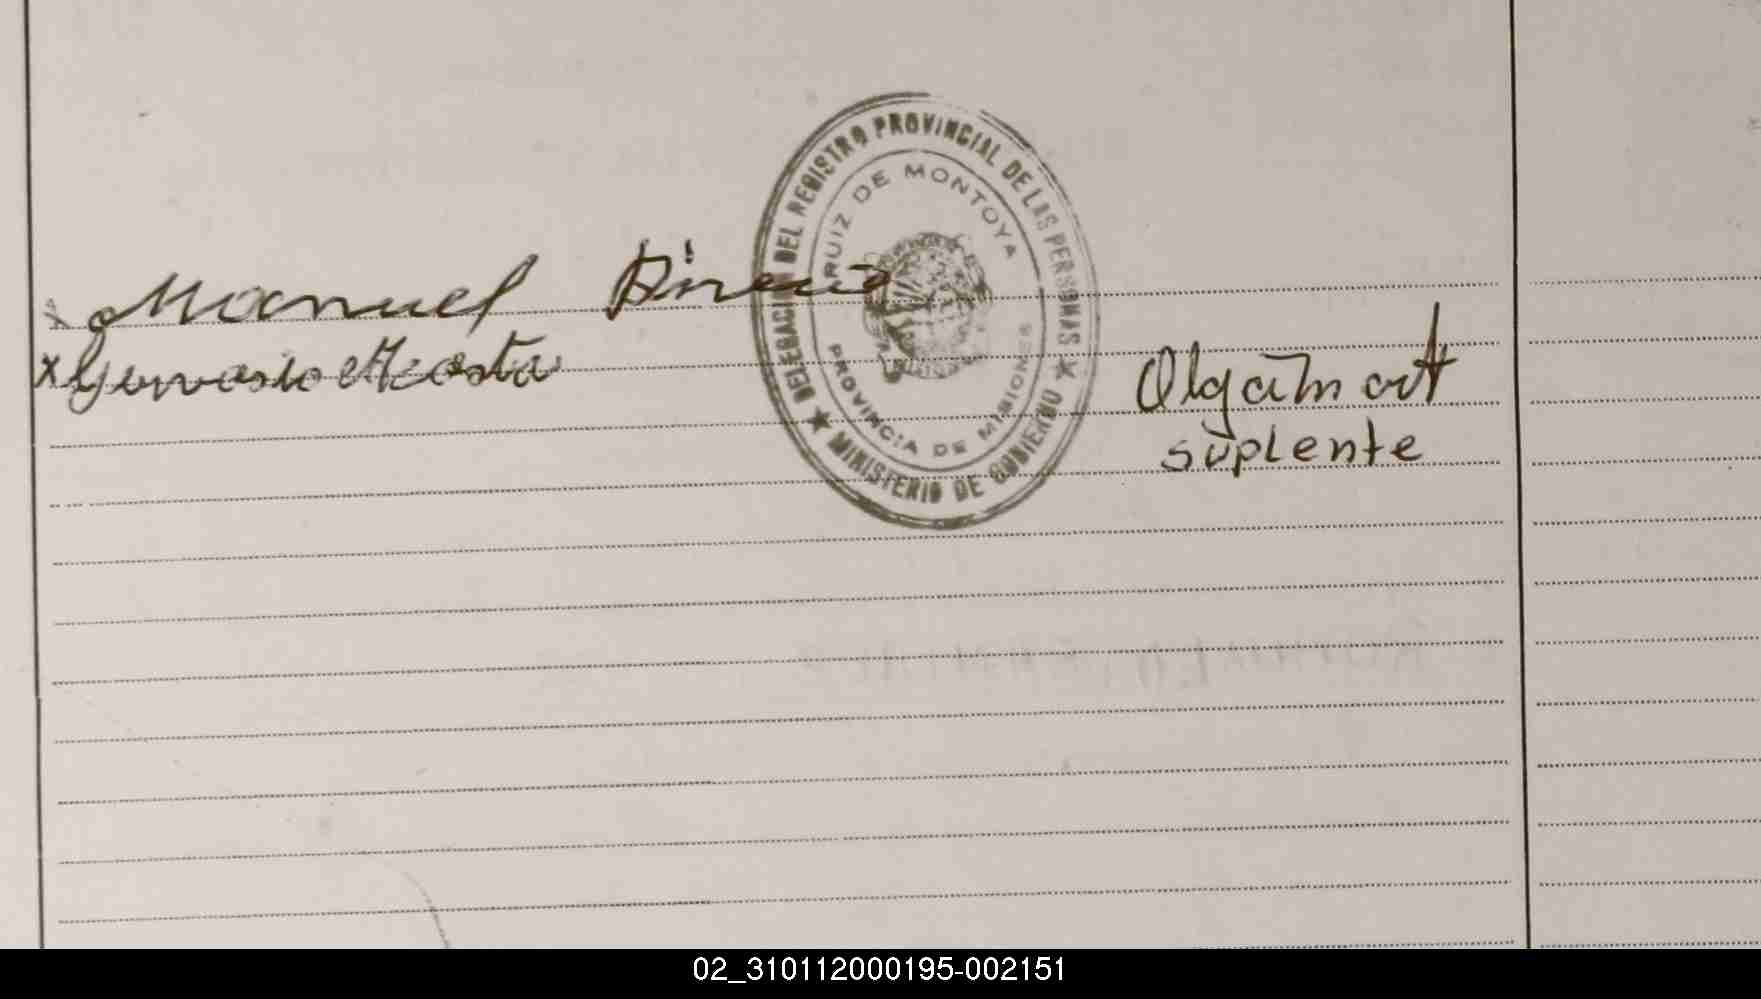 DELEGACION DEL REGISTRO PROVINCIAL DE LAS PERSONAS
RUIZ DE MONTOYA
Manuel
x Gervasio Acosta
PROVINCIA DE MISIONES
MINISTERIO DE GOBIERNO
Olga
suplente
02_310112000195-002151